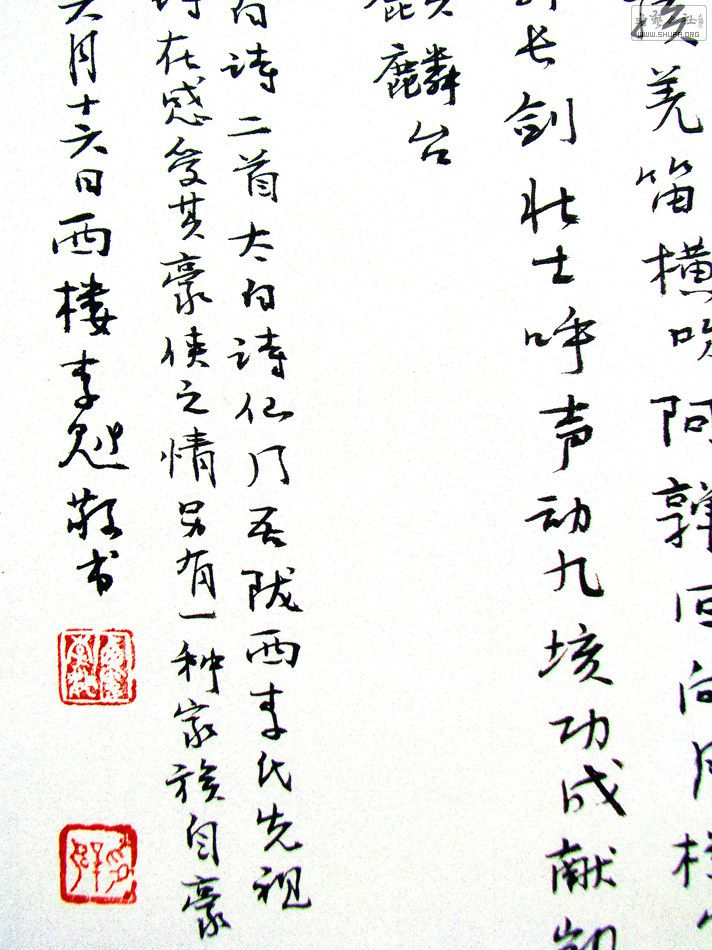 羌笛横吹阿嚲回向月楼
长剑壮士呼声动九垓功成献凯
麒麟台
白诗二首太白诗仙乃吾陇西李氏先视
诗在感受其豪侠之情另有一种家族自豪
六月十六日西楼李敬书
WWW.SHUFA.ORG